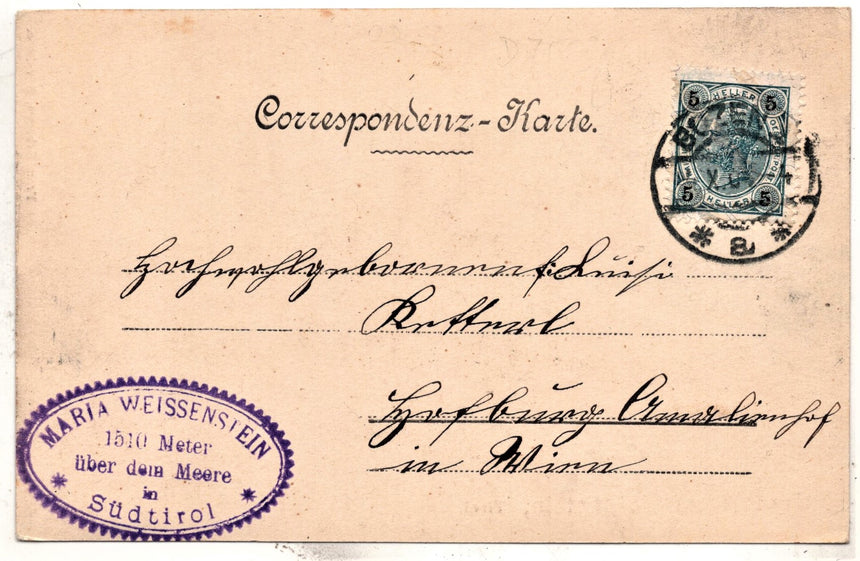 Correspondenz-Karte.
5 HELLER 5
5 HELLER 5
a
Hochwohlgebornen f: Luisi
Ketterl
Hofburg Amalienhof
in Wien
MARIA WEISSENSTEIN
1510 Meter
über dem Meere
in
Südtirol